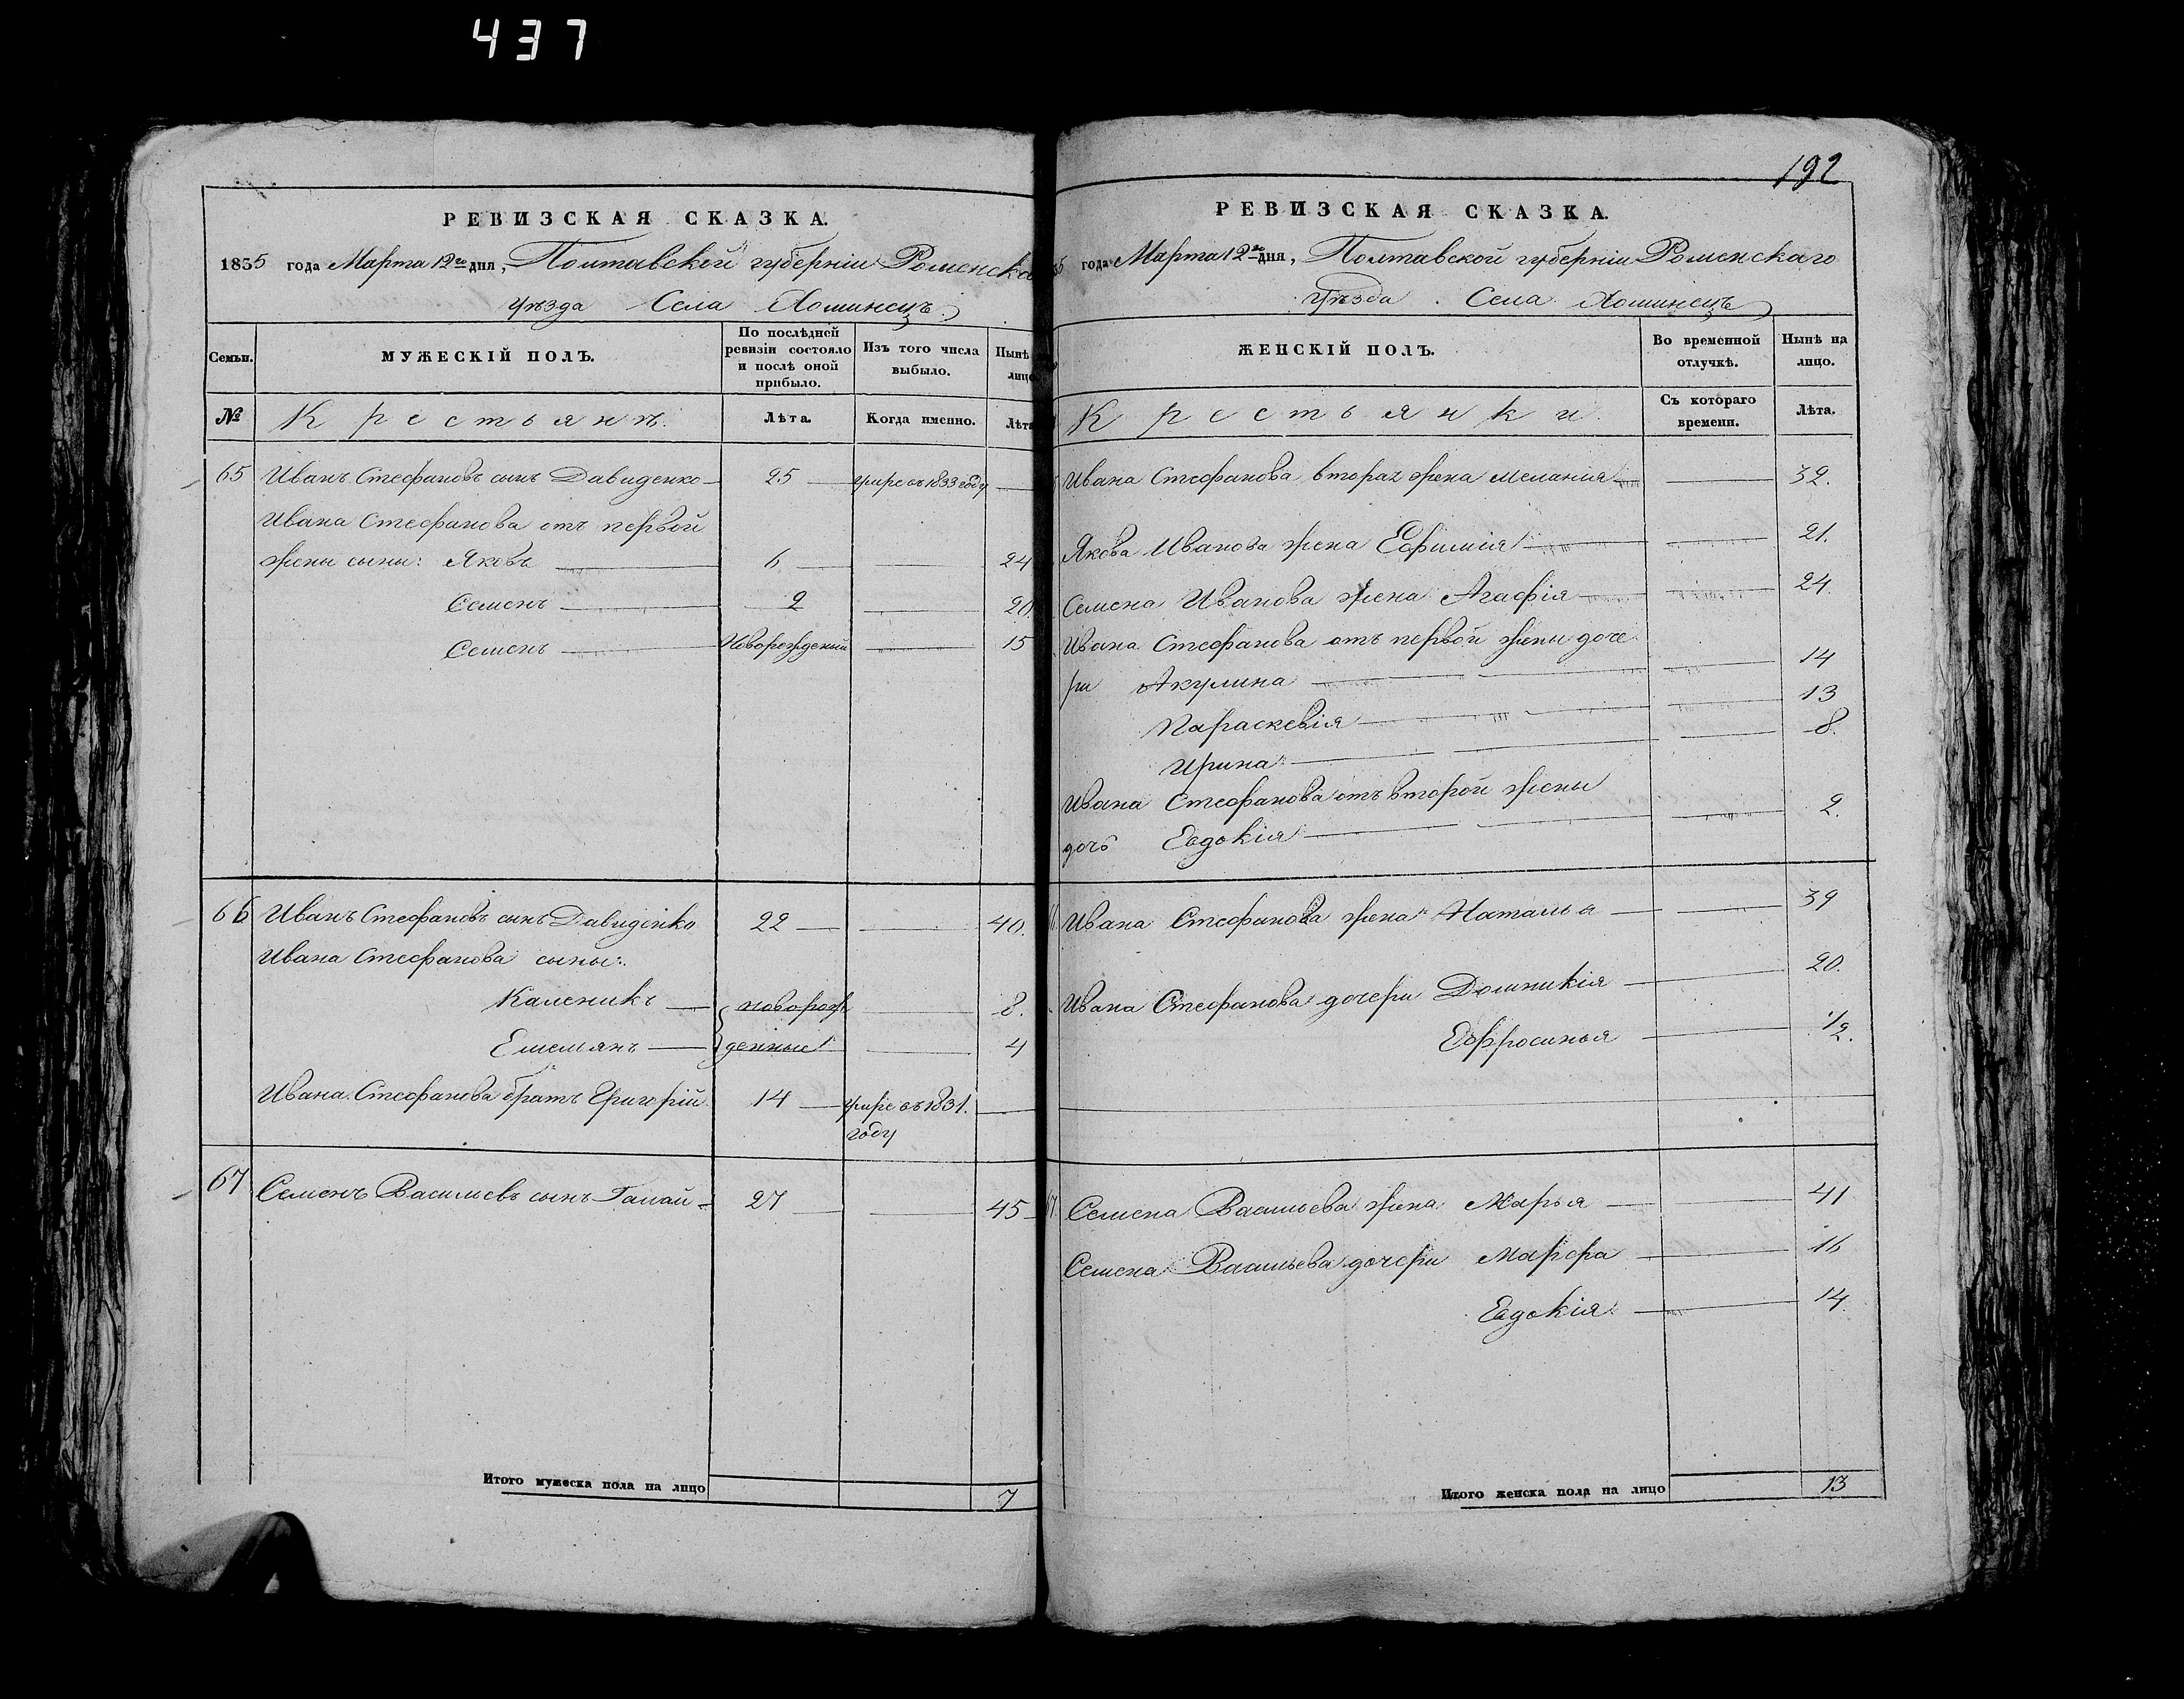 437
РЕВИЗСКАЯ СКАЗКА.
1835 года Марта 12го дня, Полтавской губерніи Роменска
уѣзда Села Хоминецъ
Семьи.
МУЖЕСКІЙ ПОЛЪ.
По послѣдней ревизіи состояло и послѣ оной прибыло.
Изъ того числа выбыло.
Нынѣ лицо
№ Крестьянъ. Лѣта. Когда именно. Лѣта
65 Иванъ Стефановъ сынъ Давиденко 25 умре въ 1833 году
Ивана Стефанова отъ первой
жены сыны: Яковъ 6 24
Семенъ 2 20.
Семенъ Новорожденый 15
66 Иванъ Стефановъ сынъ Давиденко 22 40.
Ивана Стефанова сыны:
Каленикъ новорож 8.
Емельянъ денные 4
Ивана Стефанова братъ Григорій 14 умре въ 1831.
году
67 Семенъ Васильевъ сынъ Галай 27 45
Итого мужеска пола на лицо 7
192
РЕВИЗСКАЯ СКАЗКА.
года Марта 12го дня, Полтавской губерніи Роменскаго
уѣзда Села Хоминецъ
ЖЕНСКІЙ ПОЛЪ.
Во временной отлучкѣ.
Нынѣ на лицо.
Крестьянки Съ котораго времени. Лѣта.
Ивана Стефанова вторая жена Меланія 32.
Якова Иванова жена Ефимія 21.
Семена Иванова жена Агафія 24.
Ивана Стефанова отъ первой жены доче
ри Акулина 14
Параскевія 13
Ирина 8.
Ивана Стефанова отъ второй жены
дочь Евдокія 2.
Ивана Стефанова жена Наталья 39
Ивана Стефанова дочери Домникія 20.
Ефросинья 1/2.
67 Семена Васильева жена Марья 41
Семена Васильева дочери Марфа 16
Евдокія 14.
Итого женска пола на лицо 13